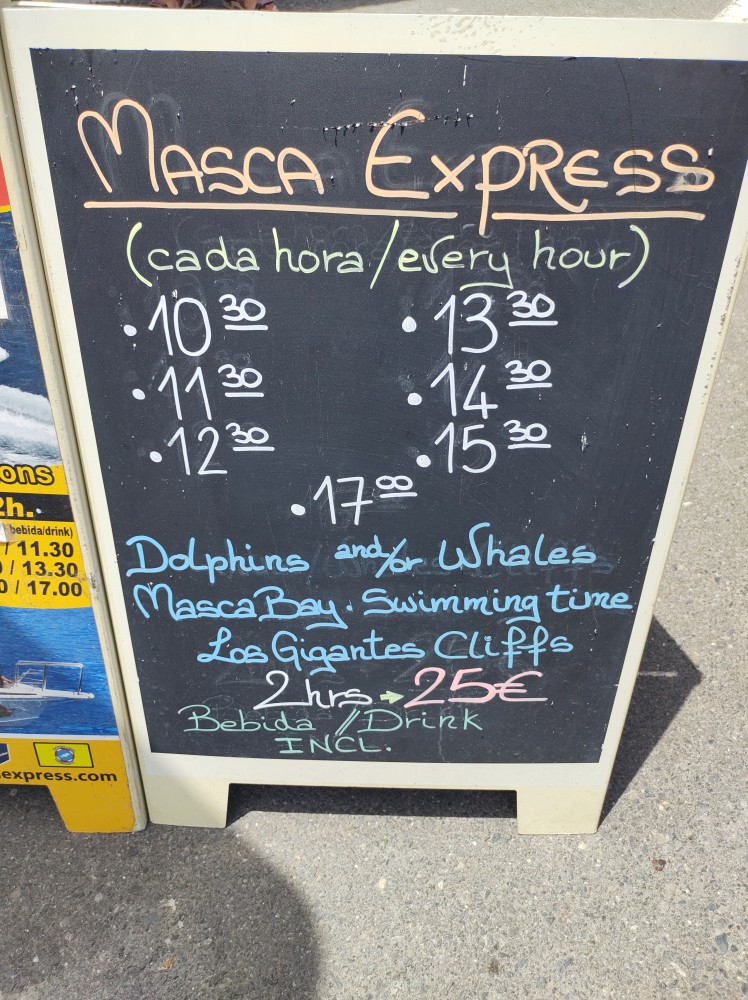 MASCA EXPRESS
(cada hora/every hour)
• 10 30 • 13 30
• 11 30 • 14 30
• 12 30 • 15 30
• 17 00
Dolphins and/or Whales
Masca Bay • Swimming time
Los Gigantes Cliffs
2hrs → 25€
Bebida / Drink
INCL.
ons
2h.
bebida/drink)
/ 11.30
/ 13.30
0 / 17.00
express.com